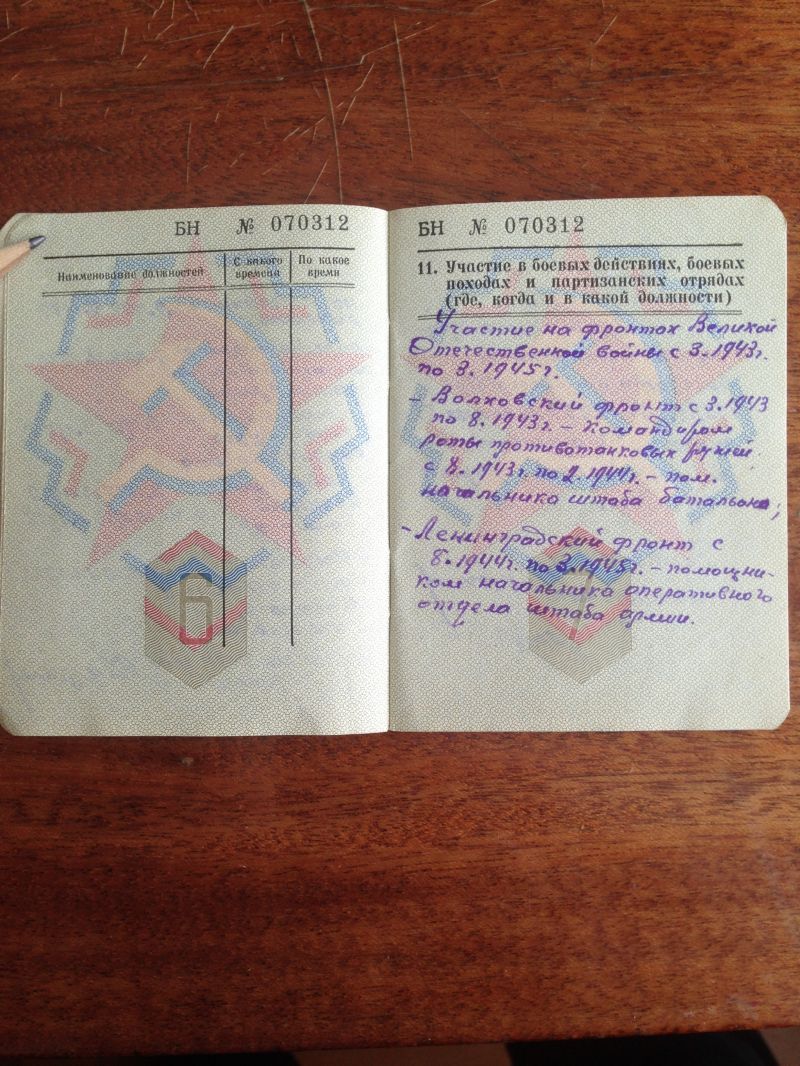 БН № 070312
Наименование должностей
С какого времени
По какое время
6
БН № 070312
11. Участие в боевых действиях, боевых
походах и партизанских отрядах
(где, когда и в какой должности)
Участие на фронтах Великой
Отечественной войны с 3.1943г.
по 3.1945г.
- Волховский фронт с 3.1943
по 8.1943г. - командиром
роты противотанковых ружей.
с 8.1943г. по 2.1944г. - пом.
начальника штаба батальона;
- Ленинградский фронт с
8.1944г. по 3.1945г. - помощни-
ком начальника оперативного
отдела штаба армии.
7